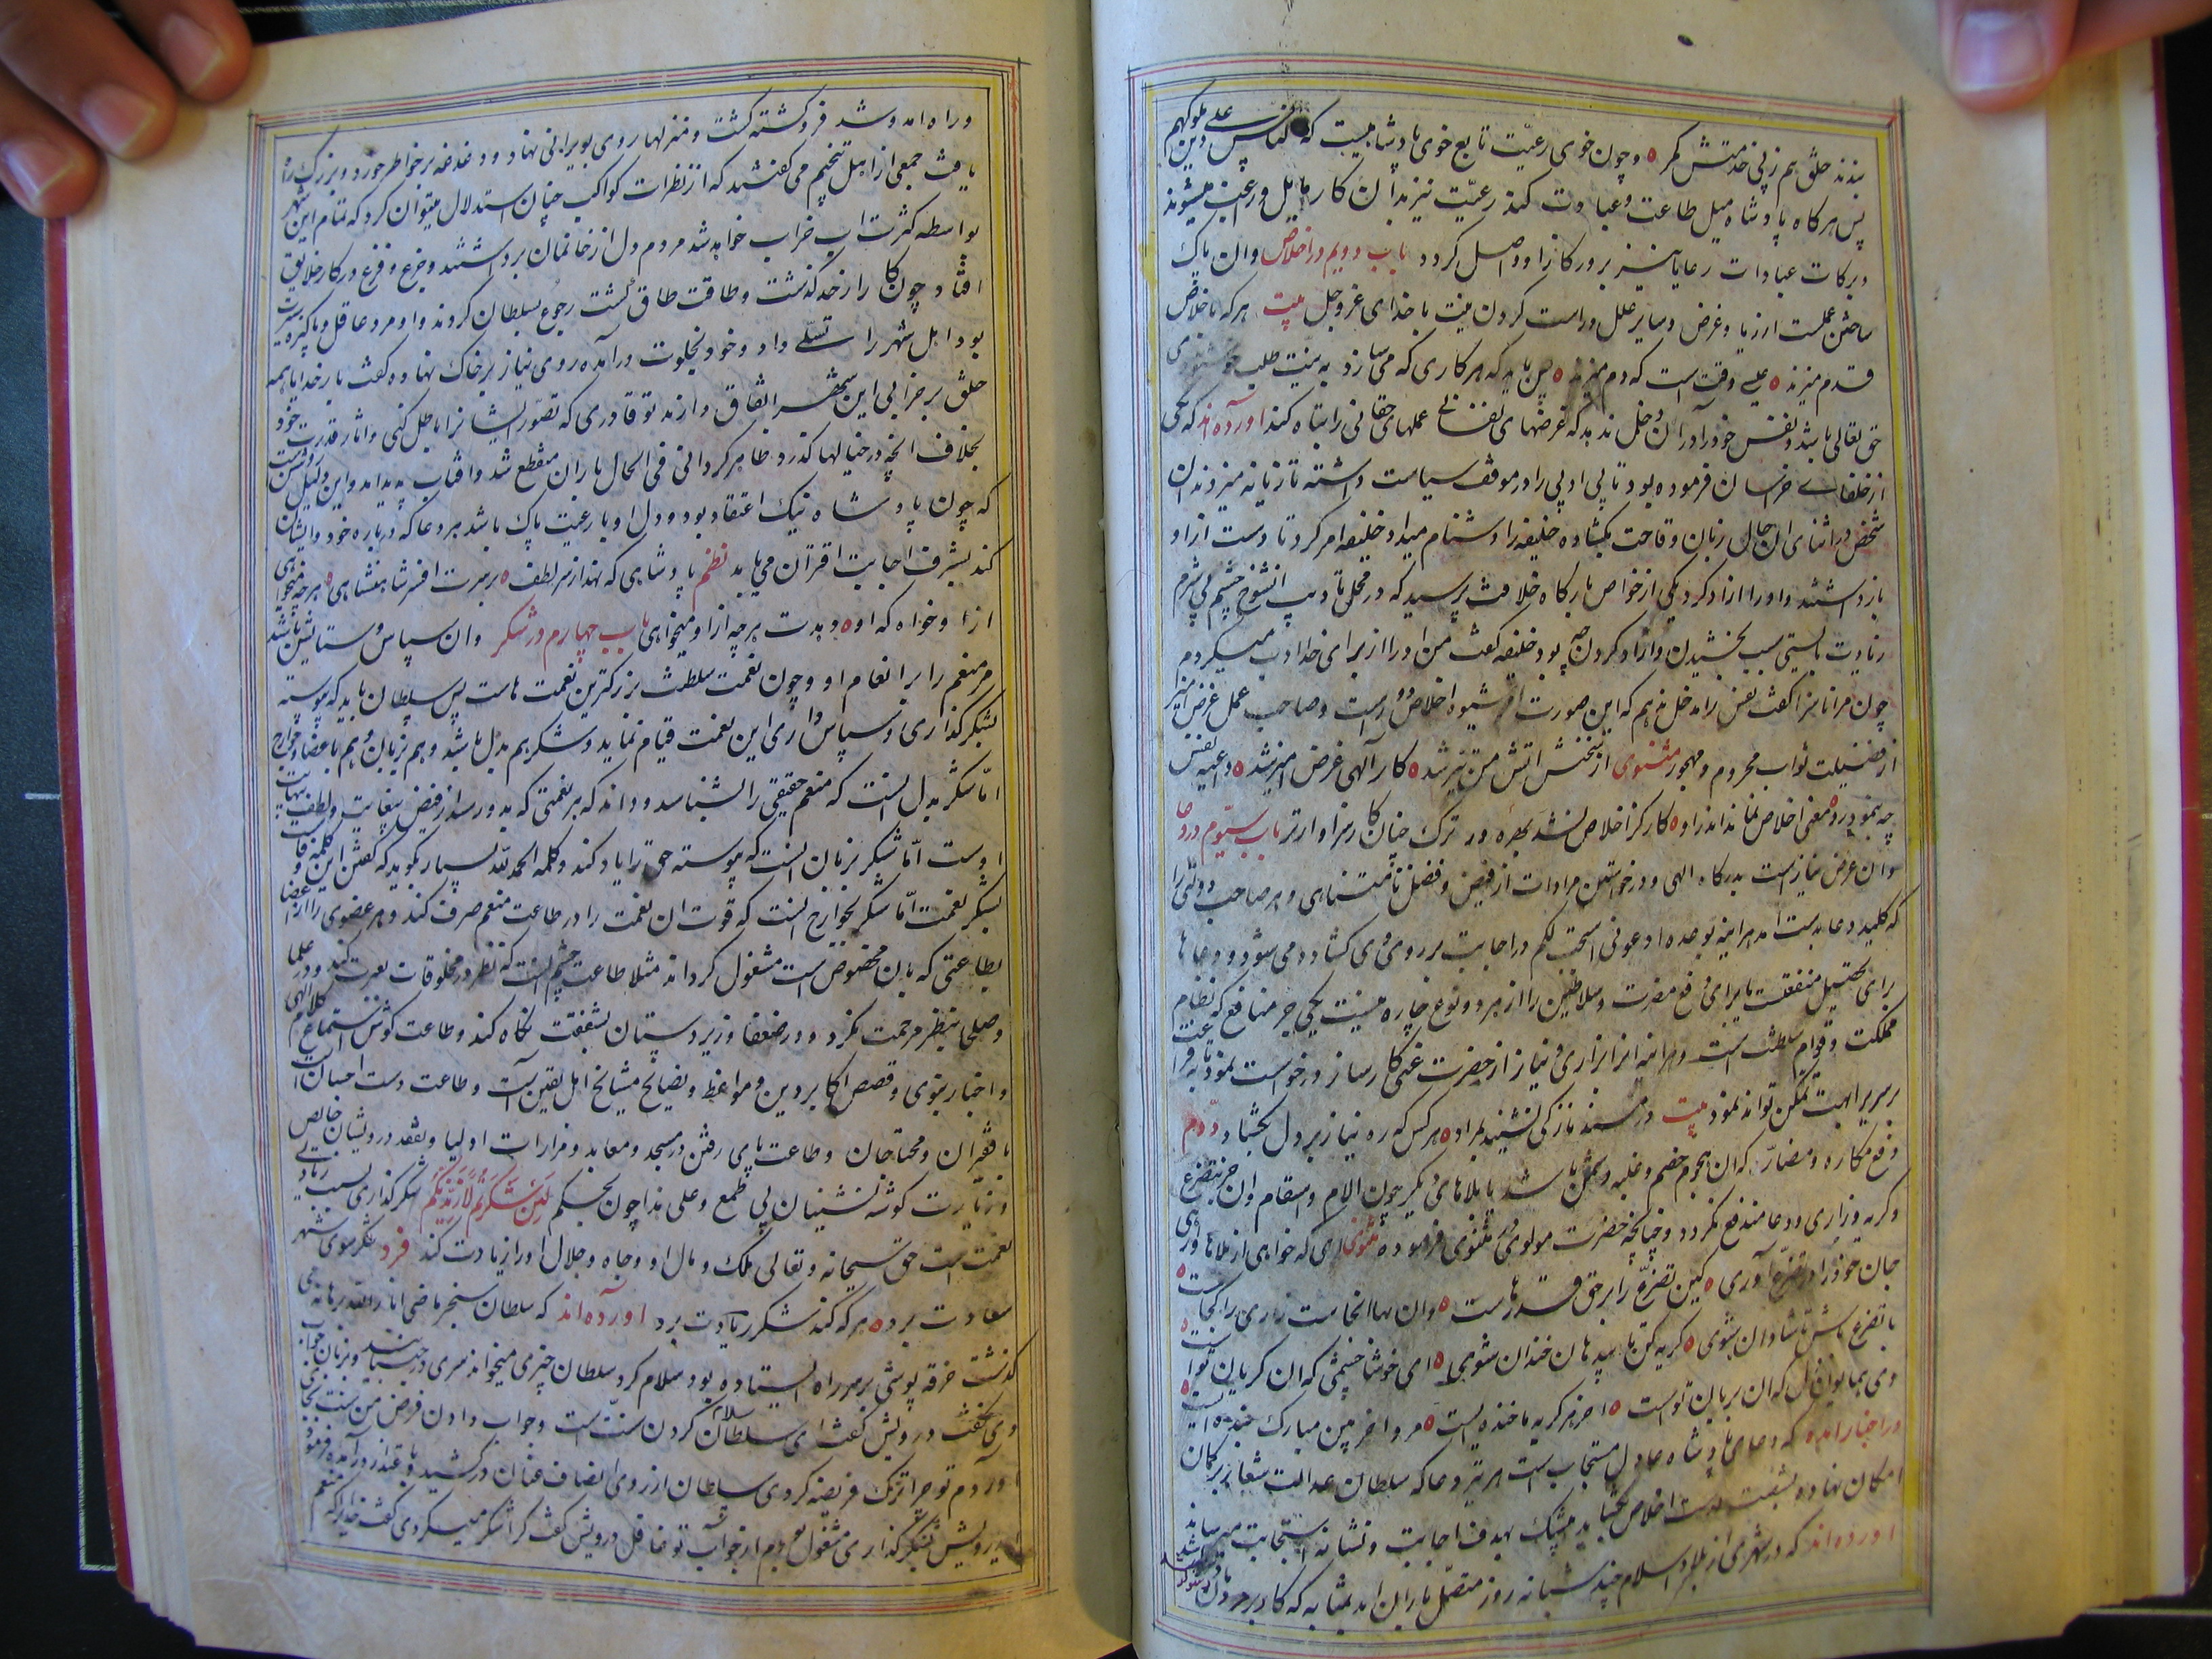 بندند خلق هم زپی خدمتش کمر ه و چون خوی رعیّت تابع خوی پادشاهیست که الناس علی دین ملوکهم
پس هر کاه پادشاه میل طاعت و عبادت کند رعیّت نیز بدان کار مایل و راغب میشوند
و برکات عبادات رعایا نیز بروزکار او واصل کردد باب دویم در اخلاص و ان پاک
ساختن عملست از ریا و غرض و سایر علل و راست کردن نیت با خدای عز و جل بیت هر که باخلاص
قدم میزند ه عیسی وقت است که دم میزند ه پس باید که هر کاری که می سازد به نیّت طلب خوشنودی
حق تعالی باشد و نفس خود را در آن دخل ندهد که غرضهای نفسانی عملهای حقانی را تباه کند اورده اند که یکی
از خلفای خراسان فرموده بود تا بی ادبی را در موقف سیاست داشته تازیانه میزدند ان
شخص در اثنای ان حال زبان وقاحت بکشاده خلیفه را دشنام میداد خلیفه امر کرد تا دست از او
بازداشتند و او را ازاد کرد یکی از خواص بارکاه خلافت پرسید که در محل تادیب انشوخ چشم بی شرم
زیادت بایستی سبب بخشیدن و ازاد کردن چه بود خلیفه کفت من او را از برای خدا ادب میکردم
چون مرا ناسزا کفت نفس را مدخل ندهم که این صورت از شیوه اخلاص دور است و صاحب عمل غرض امیز
از فضیلت ثواب محروم و مهجور مثنوی از سخنش اتش من تیز شد ه کار آلهی غرض امیز شد ه داعیه نفس
چه بنمود رو ه معنی اخلاص نماند اندر او ه کار کز اخلاص نشد بهره ور ترک چنان کار سزاوارتر باب سیّوم در دعا
و ان عرض نیاز است بدرکاه الهی و درخواستن مرادات از فیض و فضل نامتناهی و هر صاحب دولتی را
که کلید دعا بدست امد هراینه بوعده ادعونی استجب لکم در اجابت بر روی وی کشاده می شود و دعا ها
برای تحصیل منفعت یا برای دفع مضرت و سلاطین را از هر دو نوع چاره نیست یکی جر منافع که نظام
مملکت و قوام سلطنت است و هراینه انرا بزاری و نیاز از حضرت غنی کارساز درخواست نمود تا بفراغت
بر سریر ابهت تمکن تواند نمود بیت در مسند ناز کی نشیند بمراد ه هر کس که ره نیاز بر دل بکشاد دوم
دفع مکاره و مضارّ که ان هجوم خصم و غلبه دشمن باشد یا بلاهای دیکر چون الام و اسقام و ان جز بتضرع
و کریه و زاری و دعا مندفع نکردد و چنانچه حضرت مولوی در مثنوی فرموده مثنوی ای که خواهی از بلا ها وارهی
جان خود را در تضرّع آوری ه کین تضرّع را بر حق قدر هاست ه وان بها انجاست زاری را کجاست ه
با تضرع باش تا شادان شوی ه کریه کن تا بی دهان خندان شوی ه ای خوشا چشمی که ان کریان توا ست ه
وی همایون دل که ان بریان تو است ه اخر هر کریه ما خنده ایست ه مرد اخر بین مبارک بنده ایست ه
در اخبار امده که دعای پادشاه عادل مستجاب است هر تیر دعا که سلطان عدالت شعار بر کمان
امکان نهاده بشست اخلاص بکشاید بیشک بهدف اجابت و نشانه استجابت میرساند
اورده اند که در شهری از بلاد اسلام چند شبانه روز متصل باران امد بمثابه که کار بر مردم دشوار شد
و راه امد و شد فروکشته کشت و منزلها روی بویرانی نهاد و دغدغه بر خواطر خورد و بزرک راه
یافت جمعی از اهل تنجیم می کفتند که از نظرات کواکب چنان استدلال میتوان کرد که تمام این شهر
بواسطه کثرت اب خراب خواهد شد مردم دل از خانمان برداشتند و جزع و فزع در کار خلایق
افتاد چون کار از حد کذشت و طاقت طاق کشت رجوع بسلطان کردند و او مرد عاقل و پاکیزه سیرت
بود اهل شهر را تسلّی داد و خود بخلوت درآمده روی نیاز بر خاک نهاده کفت بار خدایا همه
خلق بر خرابی این شهر اتفاق دارند تو قادری که تصوّر ایشانرا باطل کنی و اثار قدرت خود
بخلاف انچه در خیالها کذرد ظاهر کردانی فی الحال باران منقطع شد و افتاب پدید امد و این دلیل روشن است
که چون پادشاه نیک اعتقاد بود و دل او با رعیت پاک باشد هر دعا که درباره خود و ایشان
کند بشرف اجابت اقتران می یابد نظم پادشاهی که نهد از سر لطف ه بر سرت افسر شاهنشاهی ه هر چه میخواهی
ازا و خواه که او ه دهدت هر چه از او میخواهی باب چهارم در شکر و ان سپاس و ستایش باشد
مر منعم را بر انعام او و چون نعمت سلطنت بزرکترین نعمت هاست پس سلطان باید که پیوسته
بشکر کذاری و سپاس داری این نعمت قیام نماید و شکر هم بدل باشد و هم بزبان و هم باعضا و جوارح
امّا شکر بدل انست که منعم حقیقی را بشناسد و داند که هر نعمتی که بدو رسد از فیض بیغایت و لطف بینهایت
اوست امّا شکر بزبان انست که پیوسته حق را یاد کند و کلمه الحمد لله بسیار بکوید که کفتن این کلمه وفاست
بشکر نعمت امّا شکر بجوارح انست که قوت ان نعمت را در طاعت منعم صرف کند و هر عضوی را از اعضا
بطاعتی که بان مخصوص است مشغول کرداند مثلا طاعت چشم انست که نظر در مخلوقات بعبرت کند و در علما
و صلحا بنظر مرحمت نکرد و در ضعفا و زیردستان بشفقت نکاه کند و طاعت کوش استماع کلام الهی
و اخبار نبوی و قصص اکابر دین و مواعظ و نصایح مشایخ اهل یقین است و طاعت دست احسان است
با فقیران و محتاجان و طاعت پای رفتن در مسجد و معابد و مزارات اولیا و تفقد درویشان خالص
و زیارت کوشه نشینان بی طمع و علی هذا چون بحکم لَئِن شَکَرتُم لَاَزیدَنَّکُم شکر کذاری سبب زیادتی
نعمت است حق سبحانه و تعالی ملک و مال او و جاه و جلال او را زیادت کند فرد شکر سوی شهر
سعادت برد ه هر که کند شکر زیادت برد اورده اند که سلطان سنجر ماضی انار الله برهانه می
کذشت خرقه پوشی بر سر راه ایستاده بود سلام کرد سلطان چیزی میخواند سری در جنبانید و بزبان جواب
وی نکفت درویش کفت ای سلطان سلام کردن سنّت است و جواب دادن فرض من سنت بجای
آوردم تو چرا ترک فریضه کردی سلطان از روی انصاف عنان درکشید و باعتذار درآمد و فرمود
ای درویش بشکر کذاری مشغول بودم از جواب تو غافل درویش کفت کرا شکر میکردی کفت خدایرا که منعم